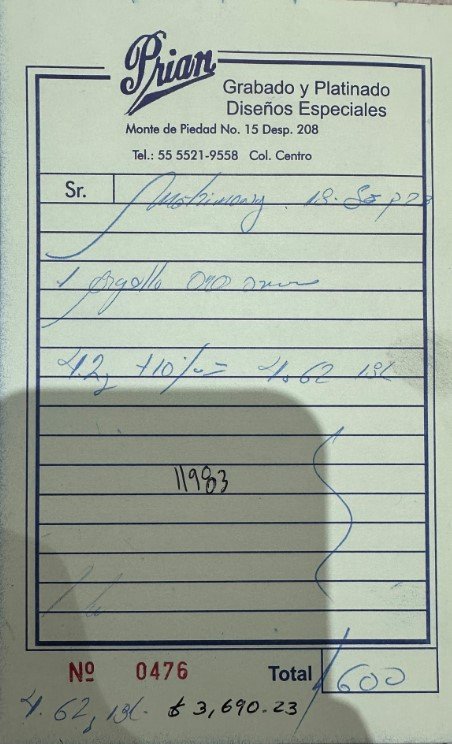 Prian
Grabado y Platinado
Diseños Especiales
Monte de Piedad No. 15 Desp. 208
Tel.: 55 5521-9558 Col. Centro
Sr.
1 Argolla oro
4.2g +10%= 4.62
11983
Nº 0476 Total 600
4.62g $ 3,690.23